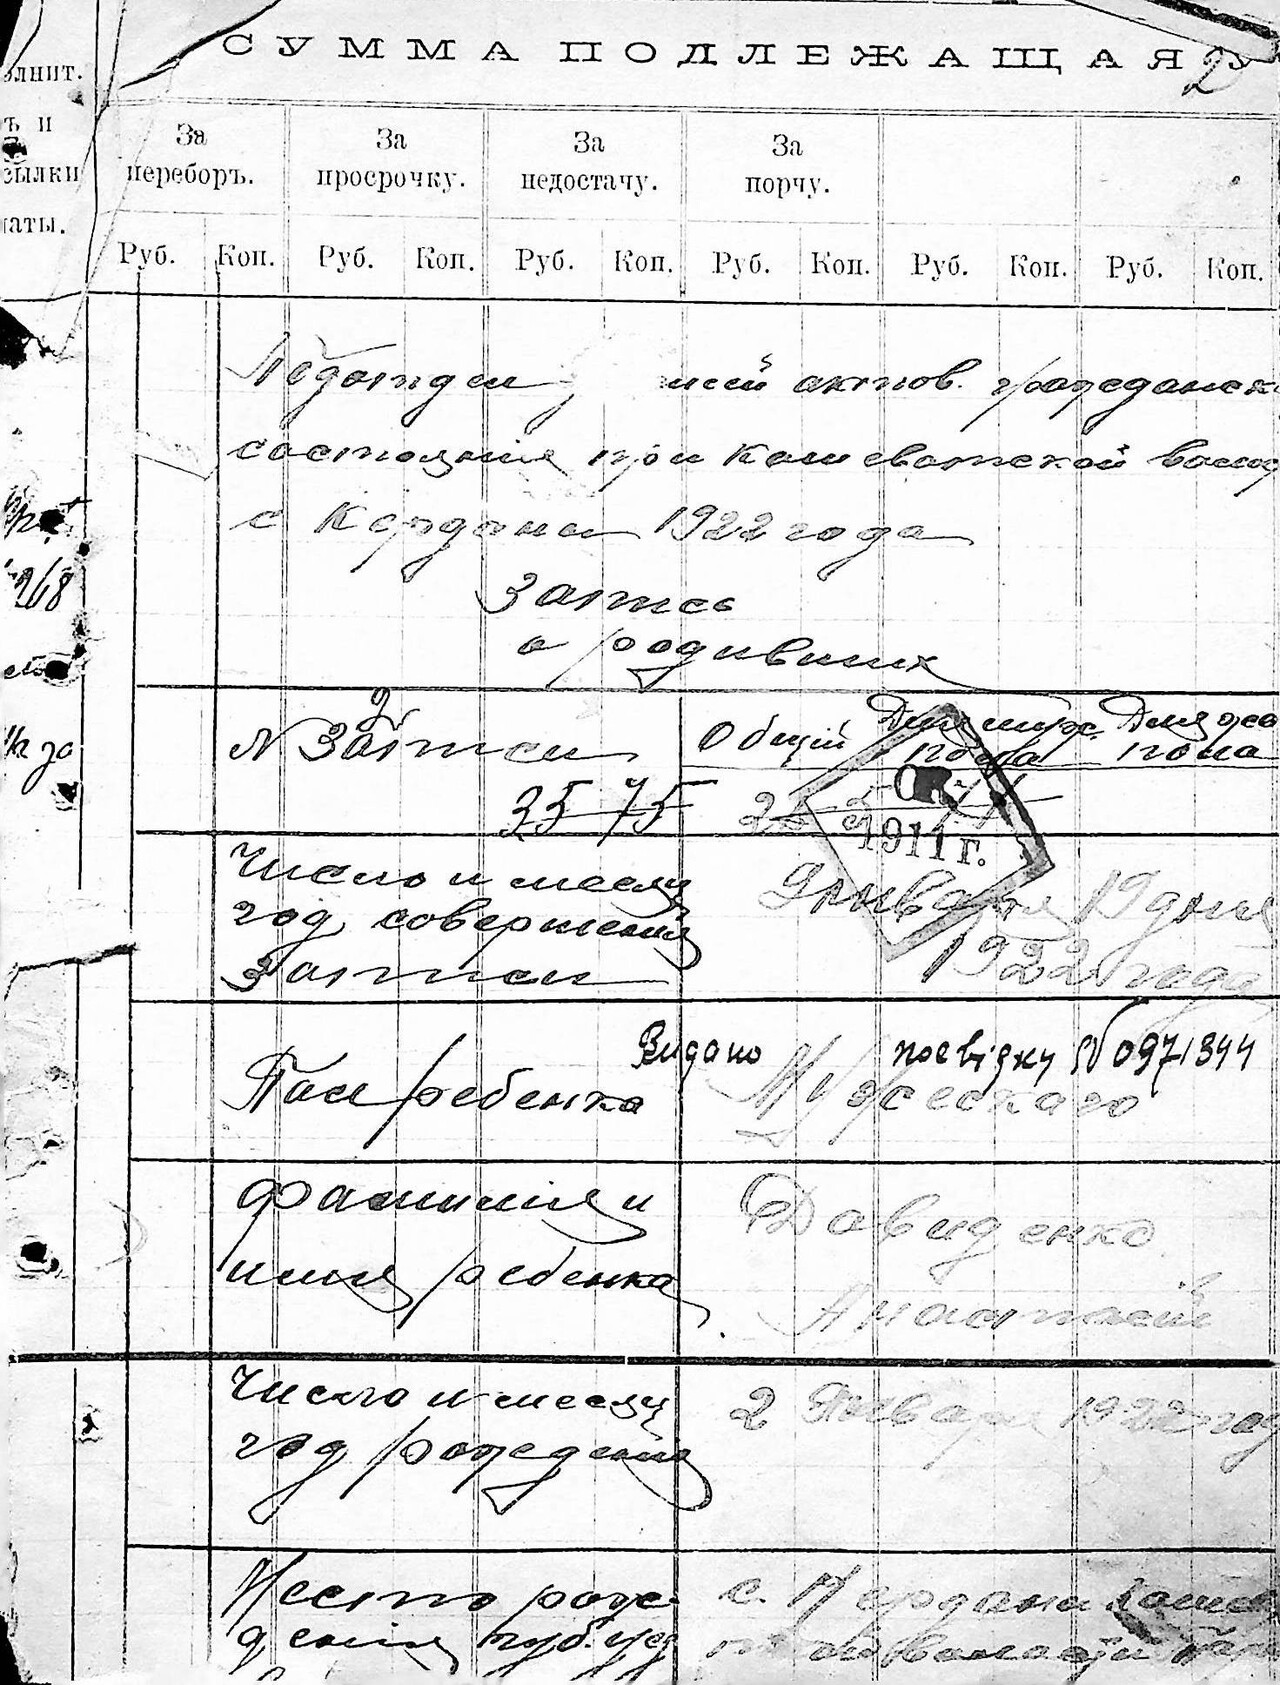 СУММА ПОДЛЕЖАЩАЯ У
2
олнит.
ъ и
зылки
латы.
За переборъ.
За просрочку.
За недостачу.
За порчу.
Руб. Коп. Руб. Коп. Руб. Коп. Руб. Коп. Руб. Коп. Руб. Коп.
актов. гражданск
состоянія при Кошеватской волос
с Кердани 1922 года
Запись
о родивших
№ Записи
Общій
Для муж. пола
Для же пола
2
35 75
1911 г.
Число и месяц
год совершенія
Записи
Января 19 дня
1922 года
Видано посвідку № 0971344
Пол ребенка
Мужескаго
Фамилия и
имя ребенка
Давиденко
Анастасій
Число и месяц
год рожденія
2 Января 1922 год
Место рож-
дения губ. уез
с. Кердани Коше
268